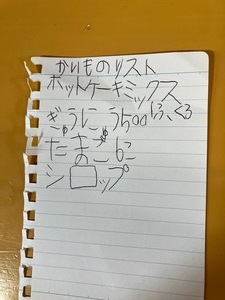 かいものリスト
ホットケーキミックス
ぎゅうにゅう500 1ふくろ
たまご6こ
シロップ